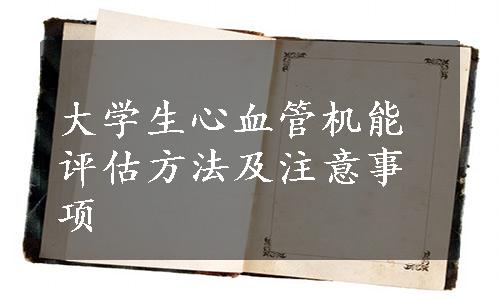 大学生心血管机能
评估方法及注意事
项